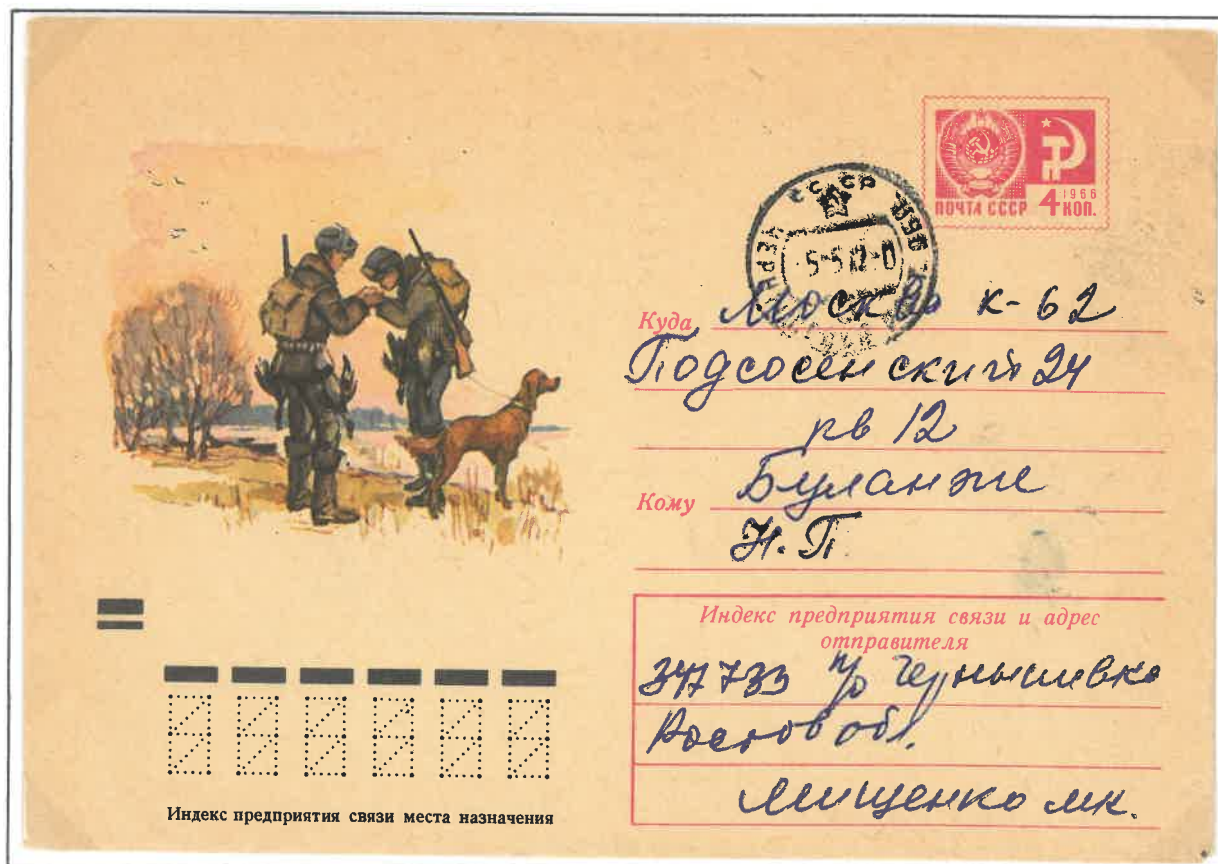 ПОЧТА СССР 4 1966 КОП.
СССР
5-5
Куда Москва К-62
Подсосенский 24
кв 12
Кому Буланже
Н.П.
Индекс предприятия связи и адрес
отправителя
347733 п/о Чернышевка
Ростов обл.
Мищенко М К.
Индекс предприятия связи места назначения